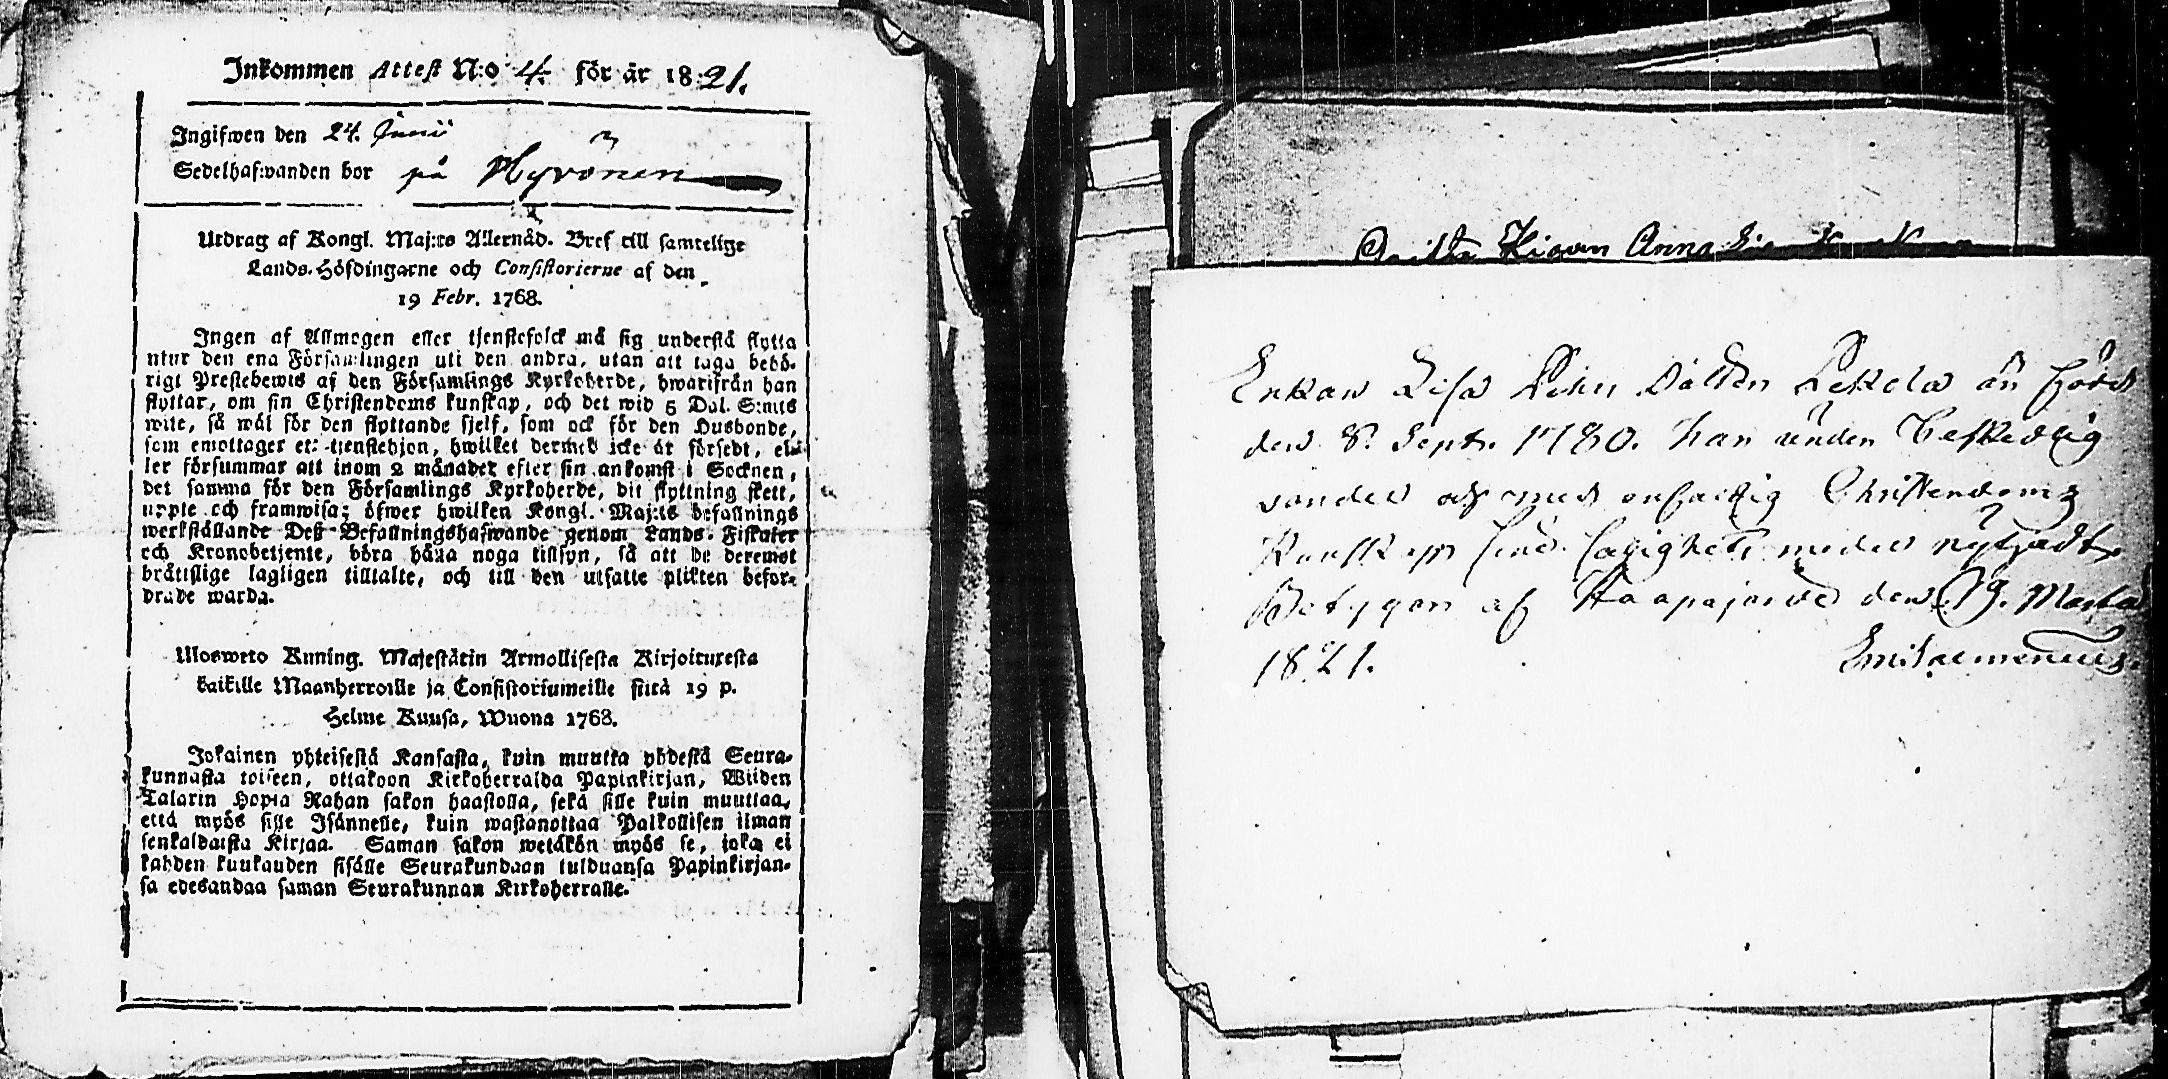 Inkommen Attest N:o 4. för år 1821.
Ingifwen den 24. Junii
Sedelhafwanden bor på Hyvönen
Utdrag af Kongl. Maj:ts Allernåd. Bref till samtelige
Lands-Höfdingarne och Consistorierne af den
19 Febr. 1768.
Ingen af Allmogen eller tjenstefolck må sig understå flytta
utur den ena Församlingen uti den andra, utan att taga behö-
rigt Prestebewis af den Församlings Kyrkoherde, hwarifrån han
flyttar, om sin Christendoms kunskap, och det wid 5 Dal. S:mts
wite, så wäl för den flyttande sjelf, som ock för den Husbonde,
som emottager et tjenstehjon, hwilket dermed icke är försedt, el-
ler försummar att inom 2 månader efter sin ankomst i Socknen,
det samma för den Församlings Kyrkoherde, dit flyttning skett,
uppte och framwisa; öfwer hwilken Kongl. Maj:ts befallnings
werkställande Deß Befallningshafwande genom Lands-Fiskaler
och Kronobetjente, böra hafwa noga tillsyn, så att de deremot
bråttslige lagligen tilltalte, och till den utsatte plikten befor-
drade warda.
Ulosweto Kuning. Majestätin Armollisesta Kirjoituxesta
kaikille Maanherroille ja Consistoriumeille siitä 19 p.
Helme Kuusa, Wuona 1768.
Jokainen yhteisestä Kansasta, kuin muutta yhdestä Seura-
kunnasta toiseen, ottakoon Kirkoherralda Papinkirjan, Wiiden
Talarin Hopia Rahan sakon haastolla, sekä sille kuin muuttaa,
että myös sille Isännelle, kuin wastanottaa Palkollisen ilman
senkaldaista Kirjaa. Saman sakon wetäkön myös se, joka ei
kahden kuukauden sisälle Seurakundaan tulduansa Papinkirjan-
sa edesandaa saman Seurakunnan Kirkoherralle.
Anna
Enkan Lisa dotter än född
den 8. Sept. 1780. har under beskedlig
vandel och med enfaldig Christendoms
Kunskap sina salighets medel nytjadt.
Betygar af Haapajärvi den 19. Martii
1821.